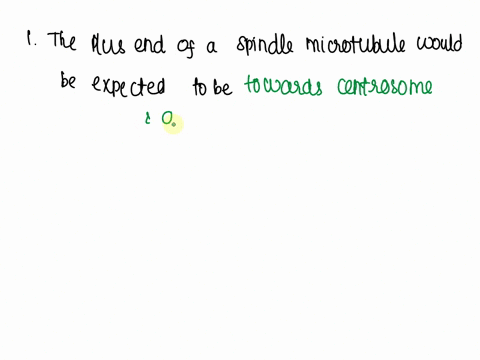 1. The Plus end of a spindle microtubule would
be expected to be towards centrosome
& O